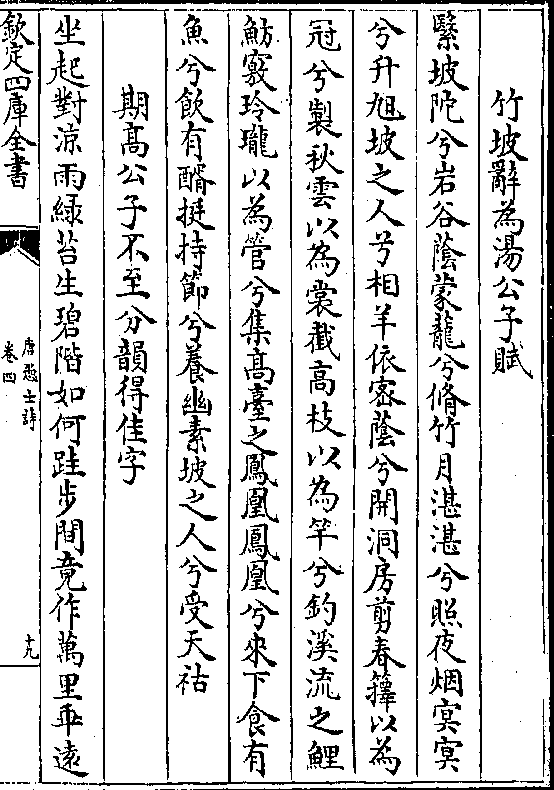 竹坡辭為湯公子賦
繄坡陀兮岩谷蔭蒙蘢兮脩竹月湛湛兮照夜烟寞寞
兮升旭坡之人兮相羊依密蔭兮開洞房剪春籜以為
冠兮製秋雲以為裳截高枝以為竿兮釣溪流之鯉
魴竅玲瓏以為管兮集高臺之鳳凰鳳凰兮來下食有
魚兮飲有醑挺持節兮養幽素坡之人兮受天祜
期高公子不至分韻得佳字
坐起對凉雨緑苔生碧階如何跬步間竟作萬里乖遠
欽定四庫全書
唐愚士詩
卷四
十九